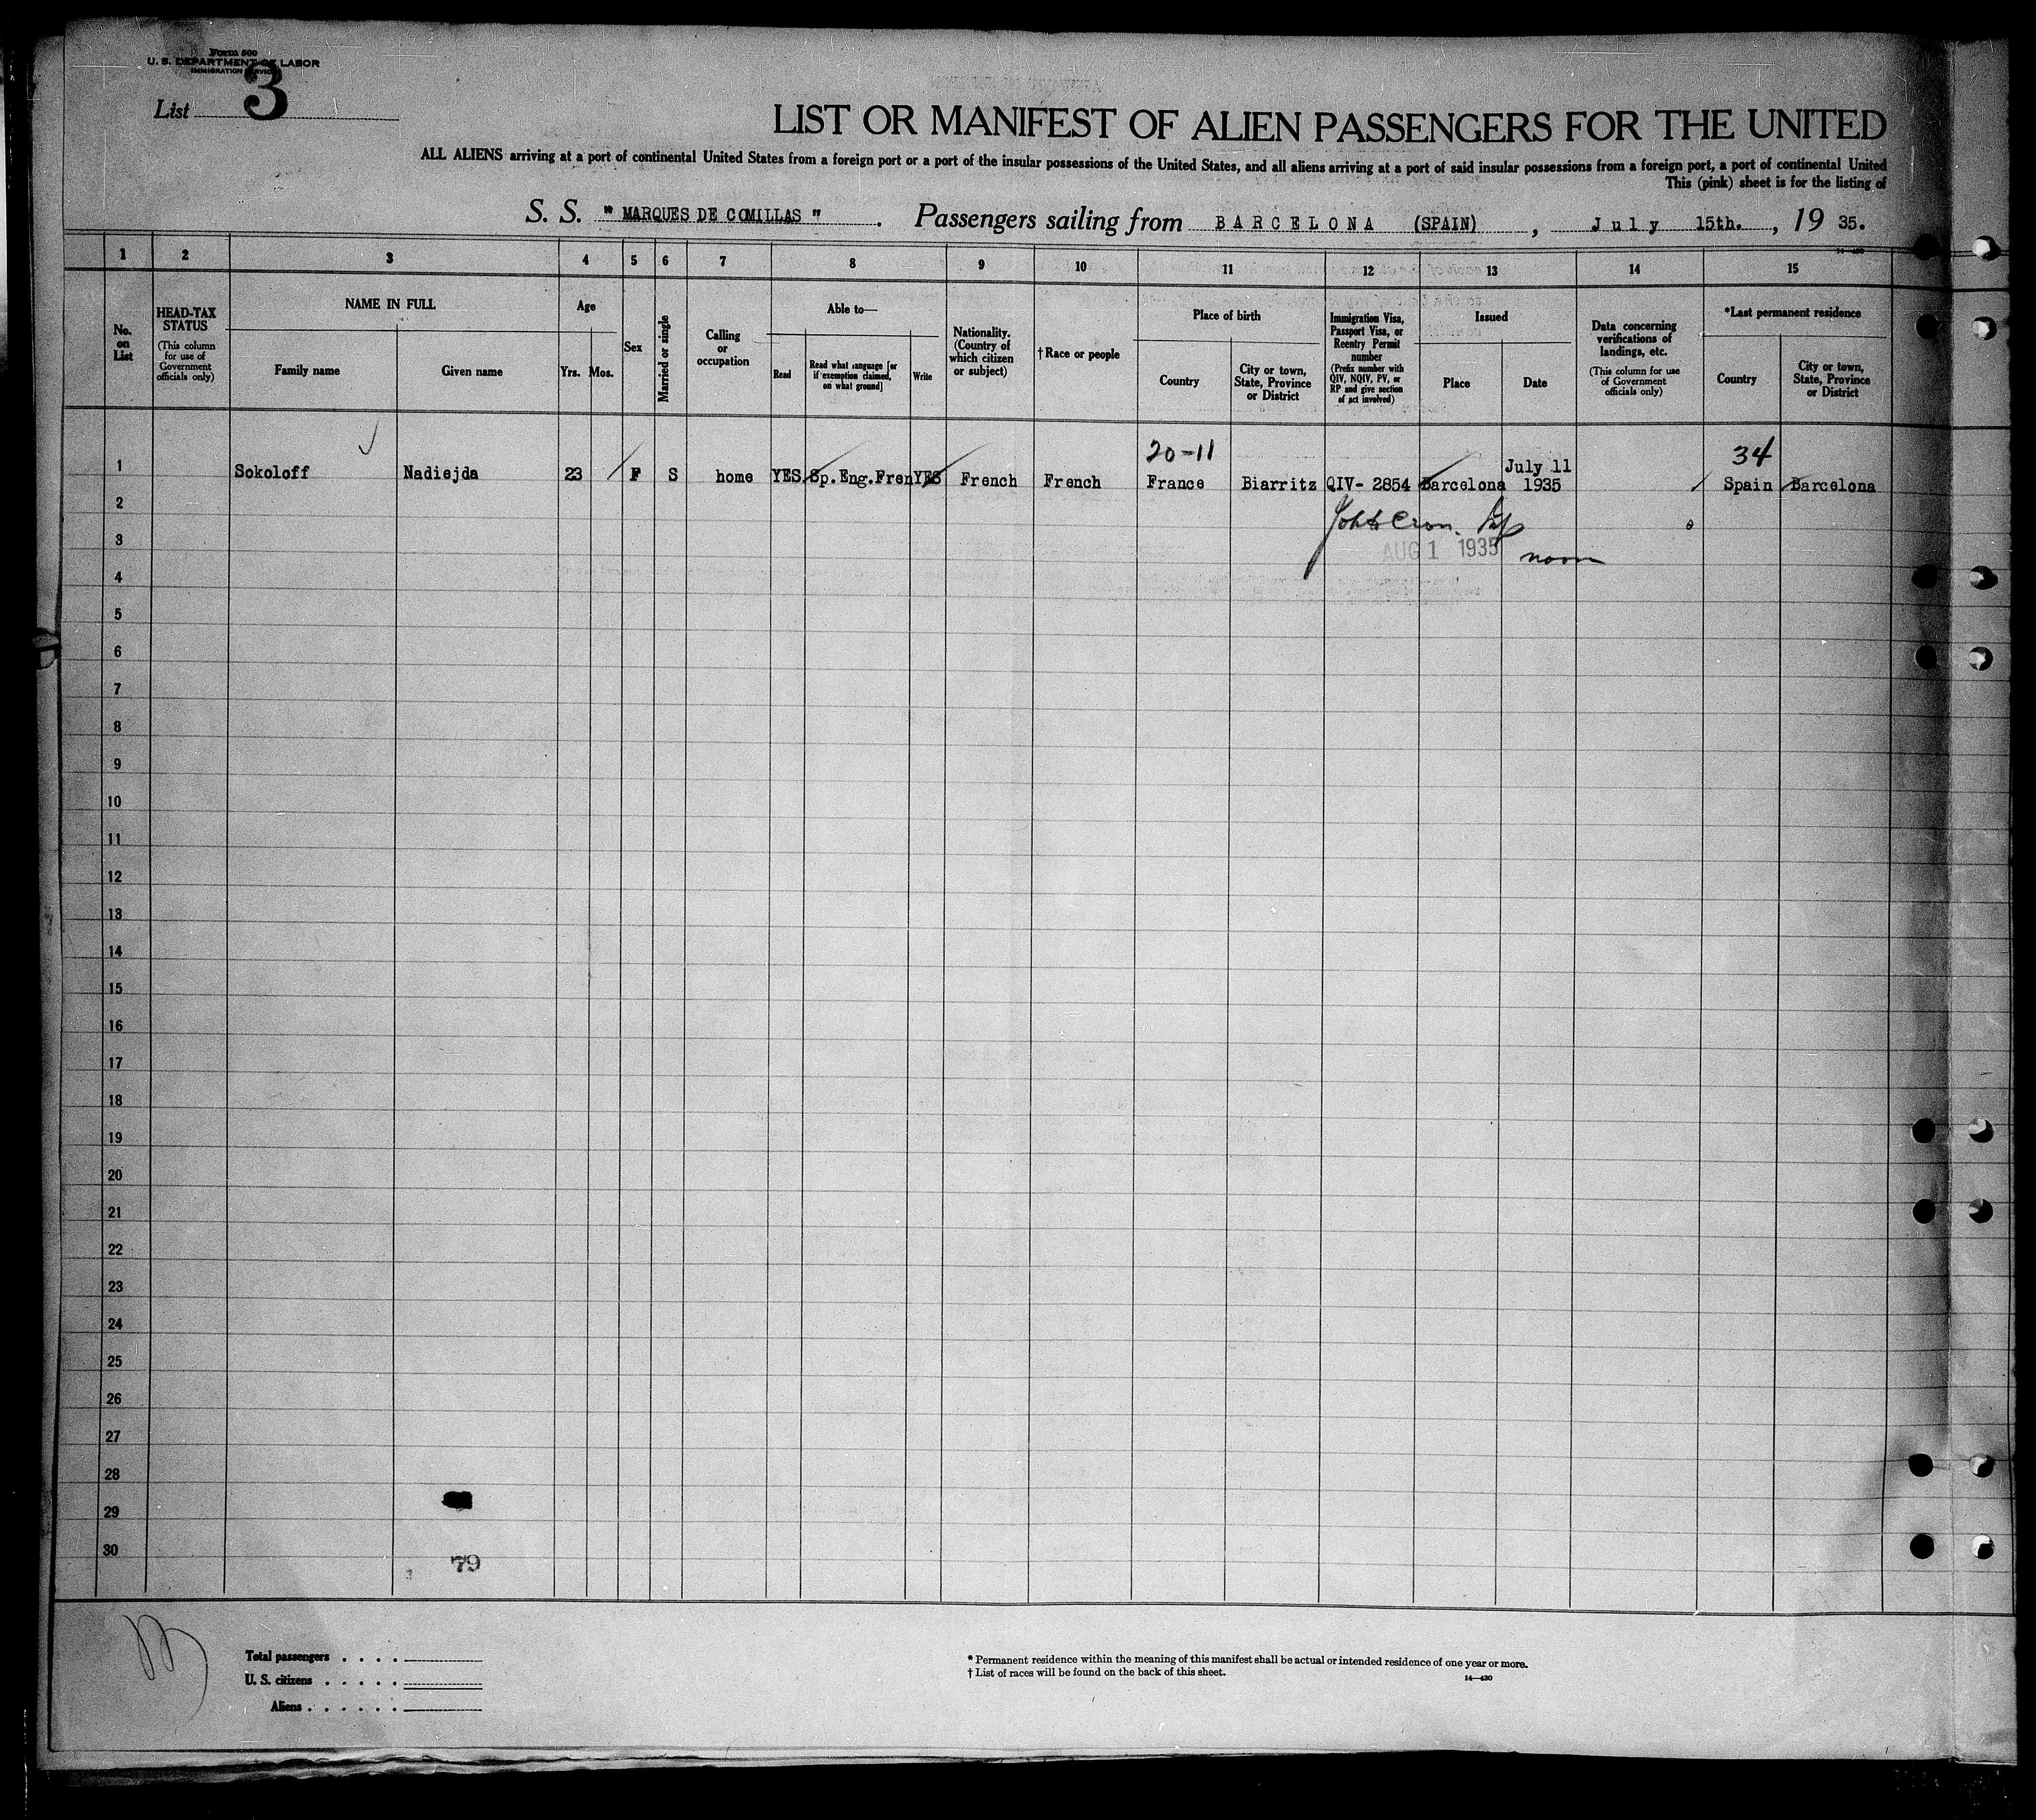 Form 500
U. S. DEPARTMENT OF LABOR
IMMIGRATION SERVICE
List 3
LIST OR MANIFEST OF ALIEN PASSENGERS FOR THE UNITED
ALL ALIENS arriving at a port of continental United States from a foreign port or a port of the insular possessions of the United States, and all aliens arriving at a port of said insular possessions from a foreign port, a port of continental United
This (pink) sheet is for the listing of
S. S. " MARQUES DE COMILLAS " . Passengers sailing from BARCELONA (SPAIN) , July 15th. , 19 35.
1 2 3 4 5 6 7 8 9 10 11 12 13 14 15
No. on List
HEAD-TAX STATUS
(This column for use of Government officials only)
NAME IN FULL
Family name
Given name
Age
Yrs. Mos.
Sex
Married or single
Calling or occupation
Able to—
Read
Read what language [or if exemption claimed, on what ground]
Write
Nationality. (Country of which citizen or subject)
†Race or people
Place of birth
Country
City or town, State, Province or District
Immigration Visa, Passport Visa, or Reentry Permit number
(Prefix number with QIV, NQIV, PV, or RP and give section of act involved)
Issued
Place
Date
Data concerning verifications of landings, etc.
(This column for use of Government officials only)
*Last permanent residence
Country
City or town, State, Province or District
20-11
34
1 Sokoloff Nadiejda 23 F S home YES Sp.Eng.Fren YES French French France Biarritz QIV- 2854 Barcelona July 11 1935 Spain Barcelona
2
3 AUG 1 1935 noon
4
5
6
7
8
9
10
11
12
13
14
15
16
17
18
19
20
21
22
23
24
25
26
27
28
29
30
79
Total passengers . . . .
U. S. citizens . . . . .
Aliens . . . . . .
* Permanent residence within the meaning of this manifest shall be actual or intended residence of one year or more.
† List of races will be found on the back of this sheet.
14—430